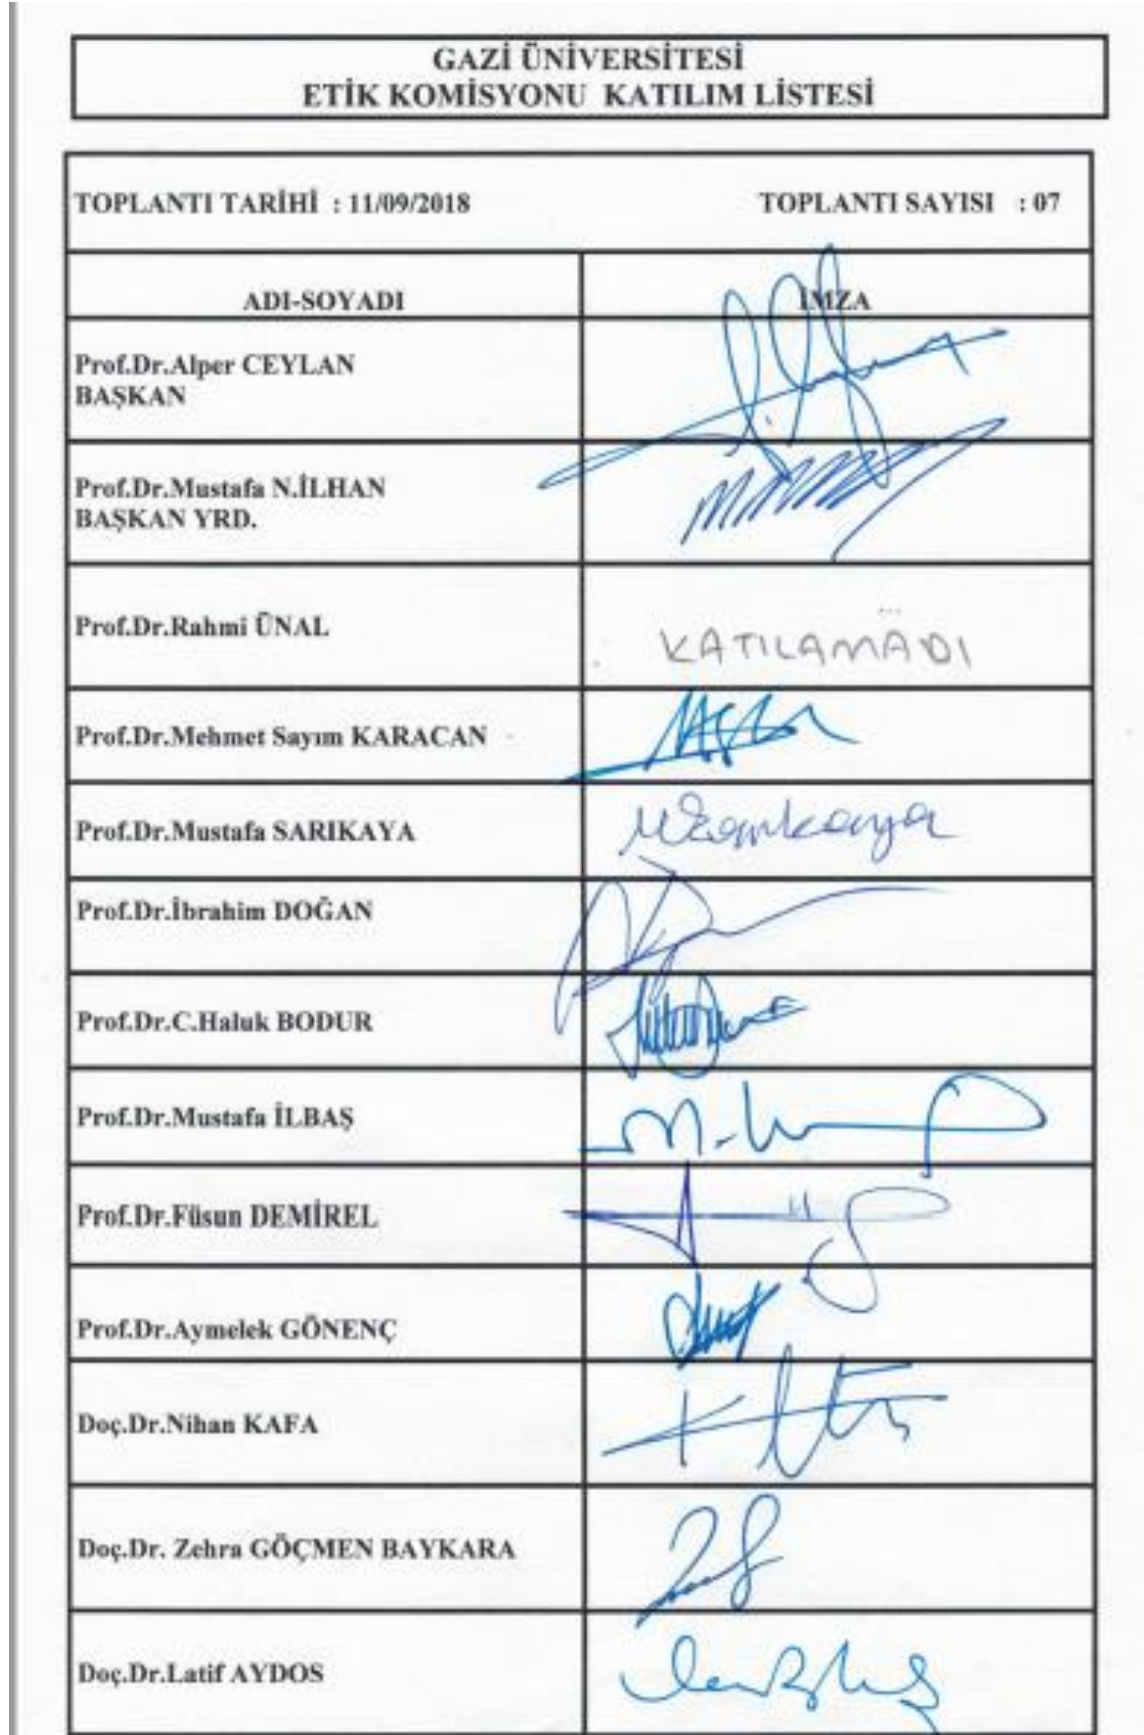 GAZİ ÜNİVERSİTESİ
ETİK KOMİSYONU KATILIM LİSTESİ
TOPLANTI TARİHİ : 11/09/2018 TOPLANTI SAYISI : 07
ADI-SOYADI İMZA
Prof.Dr.Alper CEYLAN
BAŞKAN
Prof.Dr.Mustafa N.İLHAN
BAŞKAN YRD.
Prof.Dr.Rahmi ÜNAL KATILAMADI
Prof.Dr.Mehmet Sayım KARACAN
Prof.Dr.Mustafa SARIKAYA
Prof.Dr.İbrahim DOĞAN
Prof.Dr.C.Haluk BODUR
Prof.Dr.Mustafa İLBAŞ
Prof.Dr.Füsun DEMİREL
Prof.Dr.Aymelek GÖNENÇ
Doç.Dr.Nihan KAFA
Doç.Dr. Zehra GÖÇMEN BAYKARA
Doç.Dr.Latif AYDOS